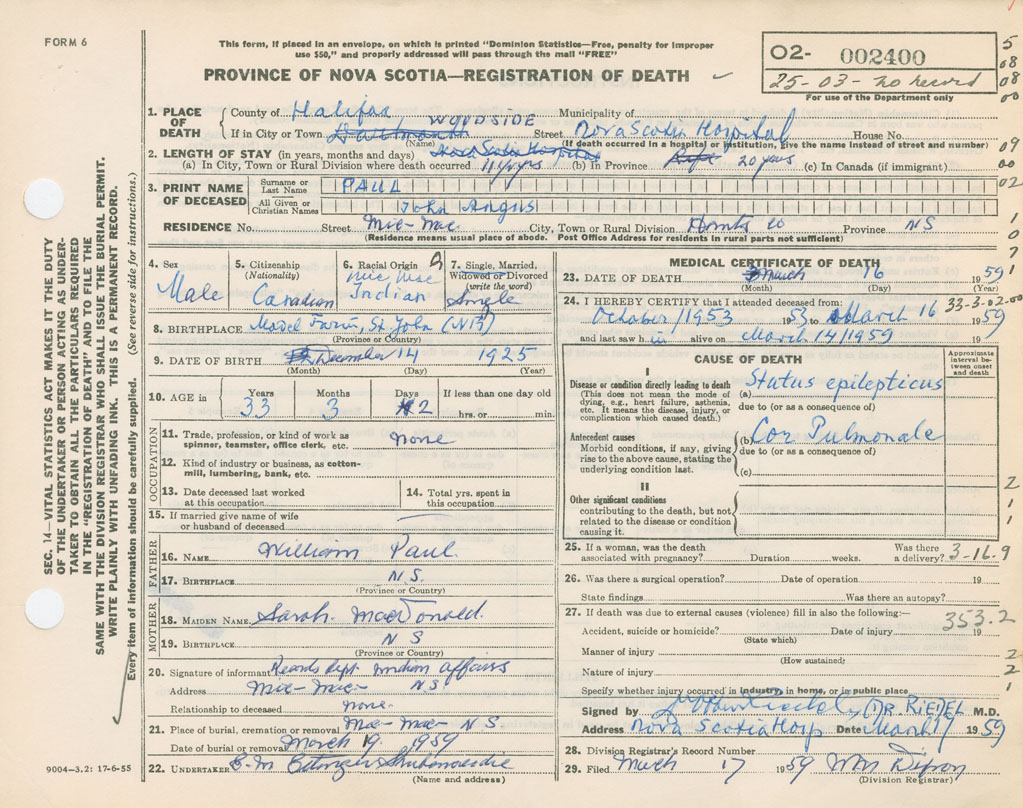 FORM 6
This form, if placed in an envelope, on which is printed "Dominion Statistics—Free, penalty for improper
use $50," and properly addressed will pass through the mail "FREE"
PROVINCE OF NOVA SCOTIA—REGISTRATION OF DEATH
02- 002400
25-03- no record
For use of the Department only
5
08
08
00
1. PLACE OF DEATH
County of Halifax Municipality of
WOODSIDE
If in City or Town Dartmouth Street Nova Scotia Hospital House No.
(Name) (If death occurred in a hospital or institution, give the name instead of street and number)
09
2. LENGTH OF STAY (in years, months and days) Nova Scotia Hospital
(a) In City, Town or Rural Division where death occurred (b) In Province Life 20 years (c) In Canada (if immigrant)
00
3. PRINT NAME OF DECEASED
Surname or Last Name PAUL
02
All Given or Christian Names John Angus
RESIDENCE No. Street Mic-Mac City, Town or Rural Division Hants Co Province NS
(Residence means usual place of abode. Post Office Address for residents in rural parts not sufficient)
1
0
7
1
4. Sex Male
5. Citizenship (Nationality) Canadian
6. Racial Origin Mic Mac Indian
9
7. Single, Married, Widowed or Divorced (write the word) Single
8. BIRTHPLACE Model Farm, St. John (NB)
(Province or Country)
9. DATE OF BIRTH December 14 1925
(Month) (Day) (Year)
10. AGE in Years 33 Months 3 Days 2 If less than one day hrs. or min.
OCCUPATION
11. Trade, profession, or kind of work as spinner, teamster, office clerk, etc. none
12. Kind of industry or business, as cotton-mill, lumbering, bank, etc.
13. Date deceased last worked at this occupation
14. Total yrs. spent in this occupation
15. If married give name of wife or husband of deceased
FATHER
16. NAME William Paul
17. BIRTHPLACE N.S.
(Province or Country)
MOTHER
18. MAIDEN NAME Sarah MacDonald
19. BIRTHPLACE N S
(Province or Country)
20. Signature of informant Records Dept Indian Affairs
Address Mic-Mac N.S.
Relationship to deceased none
21. Place of burial, cremation or removal Mic-Mac N S
Date of burial or removal March 19 1959
22. UNDERTAKER Shubenacadie
(Name and address)
MEDICAL CERTIFICATE OF DEATH
23. DATE OF DEATH March 16 1959
(Month) (Day) (Year)
24. I HEREBY CERTIFY that I attended deceased from: 33-3-02-00
October/1953 53 to March 16 1959
and last saw h im alive on March 14/1959
CAUSE OF DEATH
Approximate interval between onset and death
I
Disease or condition directly leading to death (a) Status epilepticus
(This does not mean the mode of dying, e.g., heart failure, asthenia, etc. It means the disease, injury, or complication which caused death.)
due to (or as a consequence of)
Antecedent causes (b) Cor Pulmonale
Morbid conditions, if any, giving rise to the above cause, stating the underlying condition last.
due to (or as a consequence of)
(c)
2
II
Other significant conditions
contributing to the death, but not related to the disease or condition causing it.
1
1
25. If a woman, was the death associated with pregnancy? Duration weeks. Was there a delivery? 3-16.9
26. Was there a surgical operation? Date of operation 19
State findings Was there an autopsy?
27. If death was due to external causes (violence) fill in also the following:—
353.2
Accident, suicide or homicide? Date of injury 19
(State which)
Manner of injury 2
(How sustained)
Nature of injury 2
Specify whether injury occurred in industry, in home, or in public place 1
Signed by (DR. RIEDEL) M.D.
Address Nova Scotia Hosp Date March 17 1959
28. Division Registrar's Record Number
29. Filed March 17 1959 Wm Dixon
(Division Registrar)
SEC. 14—VITAL STATISTICS ACT MAKES IT THE DUTY
OF THE UNDERTAKER OR PERSON ACTING AS UNDER-
TAKER TO OBTAIN ALL THE PARTICULARS REQUIRED
IN THE "REGISTRATION OF DEATH" AND TO FILE THE
SAME WITH THE DIVISION REGISTRAR WHO SHALL ISSUE THE BURIAL PERMIT.
WRITE PLAINLY WITH UNFADING INK. THIS IS A PERMANENT RECORD.
Every item of information should be carefully supplied. (See reverse side for instructions.)
9004—3.2: 17-6-55